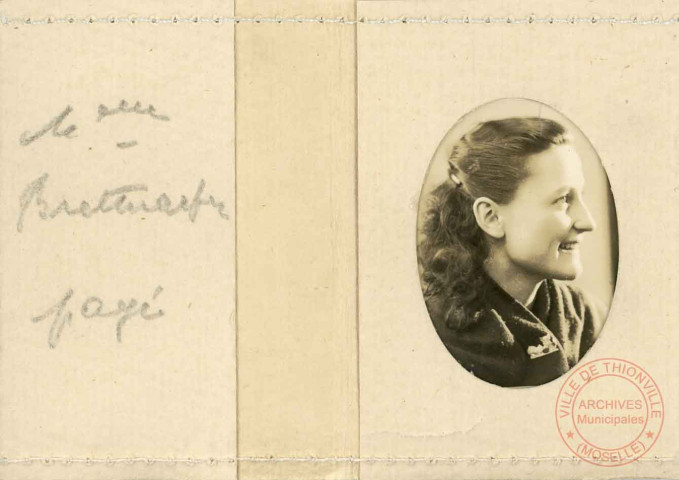 Melle
payé
VILLE DE THIONVILLE
ARCHIVES
Municipales
(MOSELLE)